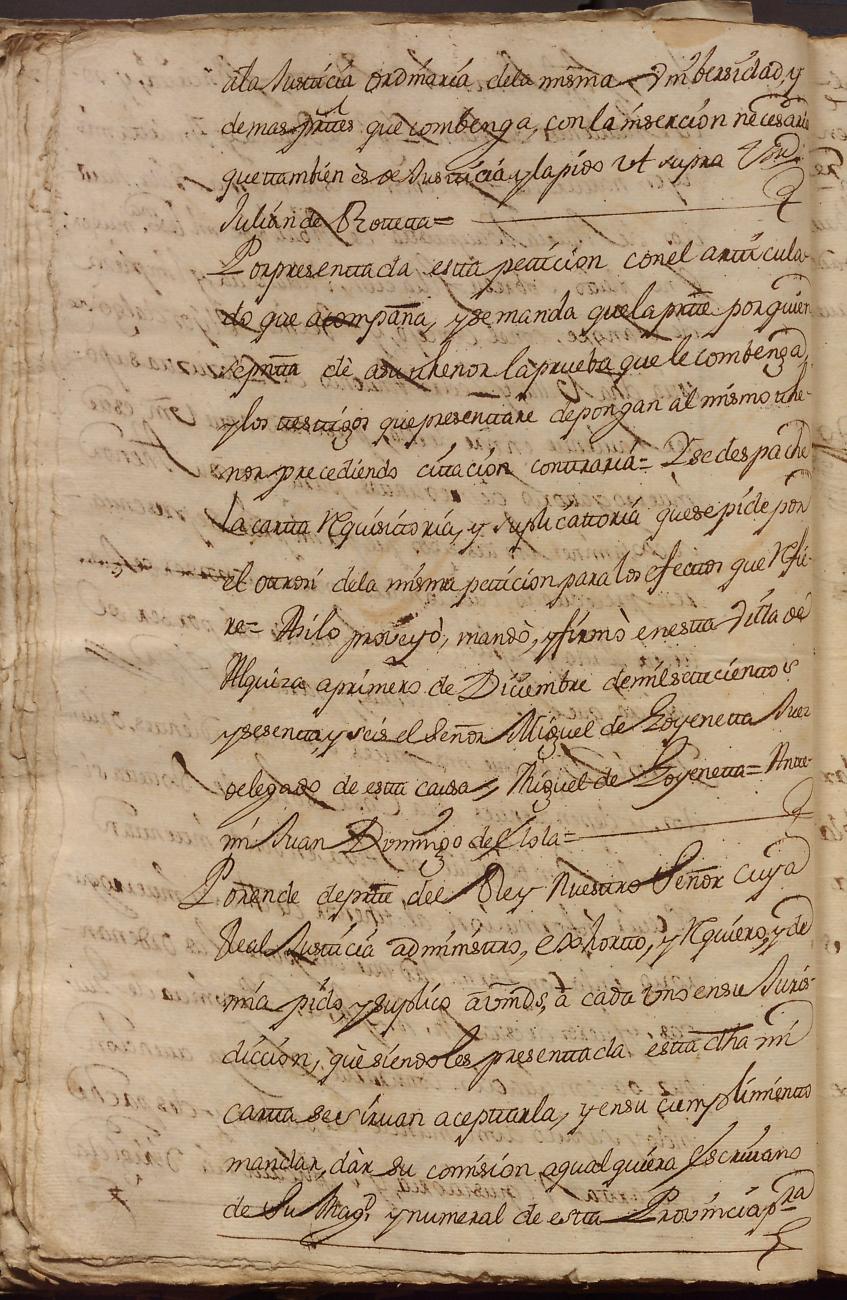 ala Justicia ordinaria dela misma Vnibersidad, y
demas prtes que combenga, con la insercion necesaria
que ttambien ès de Justicia y la pido vt supra
Julian de Rotteta=
Por presenttada estta peticion con el articula-
do que acompaña, y se manda que la prtte por quien
se pntta dè a su thenor la prueba que le combenga,
y los testtigos que presenttare depongan al mismo the-
nor precediendo cittacion conttraria= Y se despache
la cartta Requisittoria, y suplicattoria que se pide por
el ottrosi dela misma peticion para los efecttos que Refie-
re= Asi lo proveyò, mandò, y firmò en estta Villa de
Alquiza a primero de Diciembre de mil settecienttos
y sesentta, y seis el Señor Miguel de Goyenetta Juez
delegado de estta causa, Miguel de Goyenetta= Antte-
mi Juan Domingo de Elola=
Por ende de prtte del Rey Nuestro Señor cuya
Real Justicia administro, exhortto, y Requiero, y de
mia pido, y suplico a vmds, à cada vno en su Juris-
diccion, què siendoles presenttada estta dha mi
cartta se siruan acepttarla, y en su cumplimiento
mandar, dàr su comision a qualquiera Escriuano
de Su Magd y numeral de estta Provincia pra